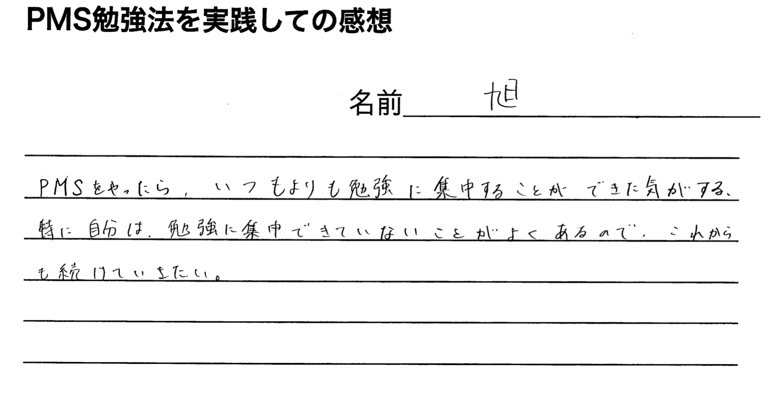 PMS勉強法を実践しての感想
名前 旭
PMSをやったら、いつもよりも勉強に集中することができた気がする、
特に自分は、勉強に集中できていないことがよくあるので、これから
も続けていきたい。